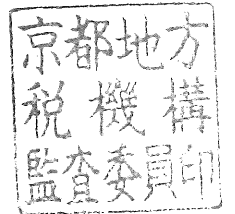 京都地方
税機構
監査委員印